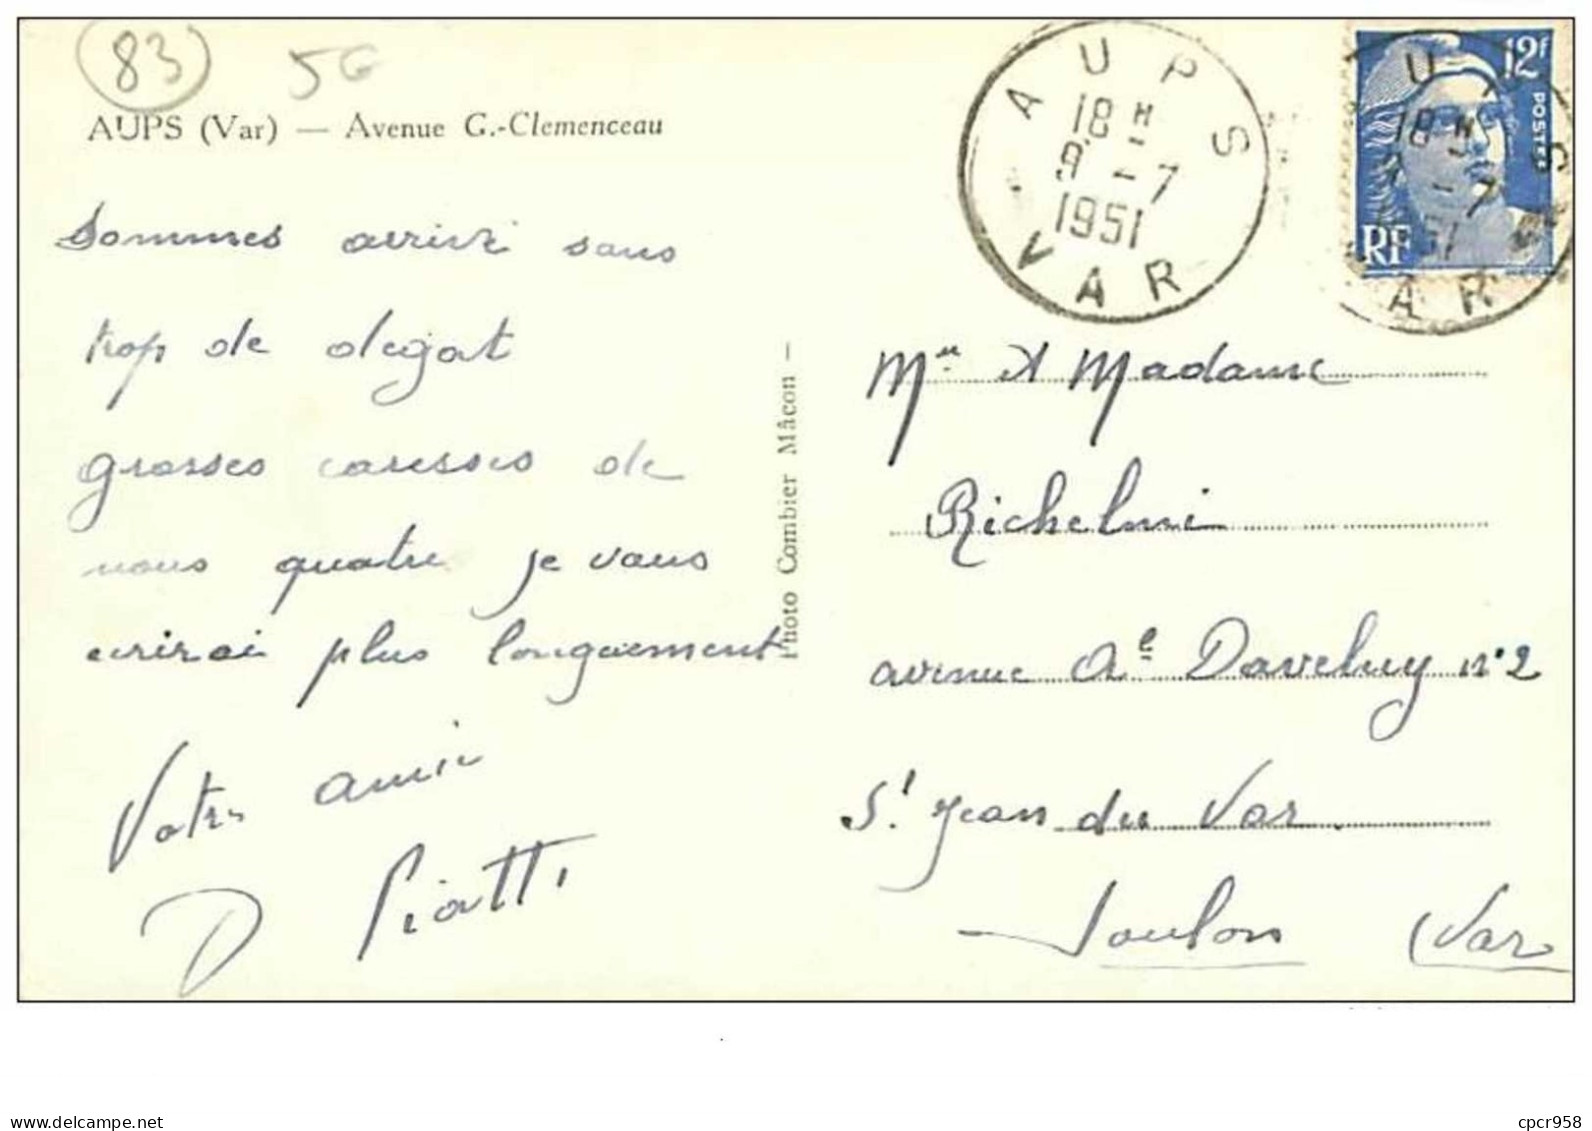 83
AUPS (Var) — Avenue G.-Clemenceau
Sommes arrivé sans
trop de degat
grosses caresses de
nous quatre je vous
ecrirai plus longuement
Votre amie
D Piatti
Photo Combier Mâcon —
AUPS
18 H
9 - 7
1951
VAR
12f
POSTES
RF
Mr et Madame
Richelmi
avenue Ale Daveluy n° 2
St Jean du Var
Toulon (Var
www.delcampe.net
cpcr958